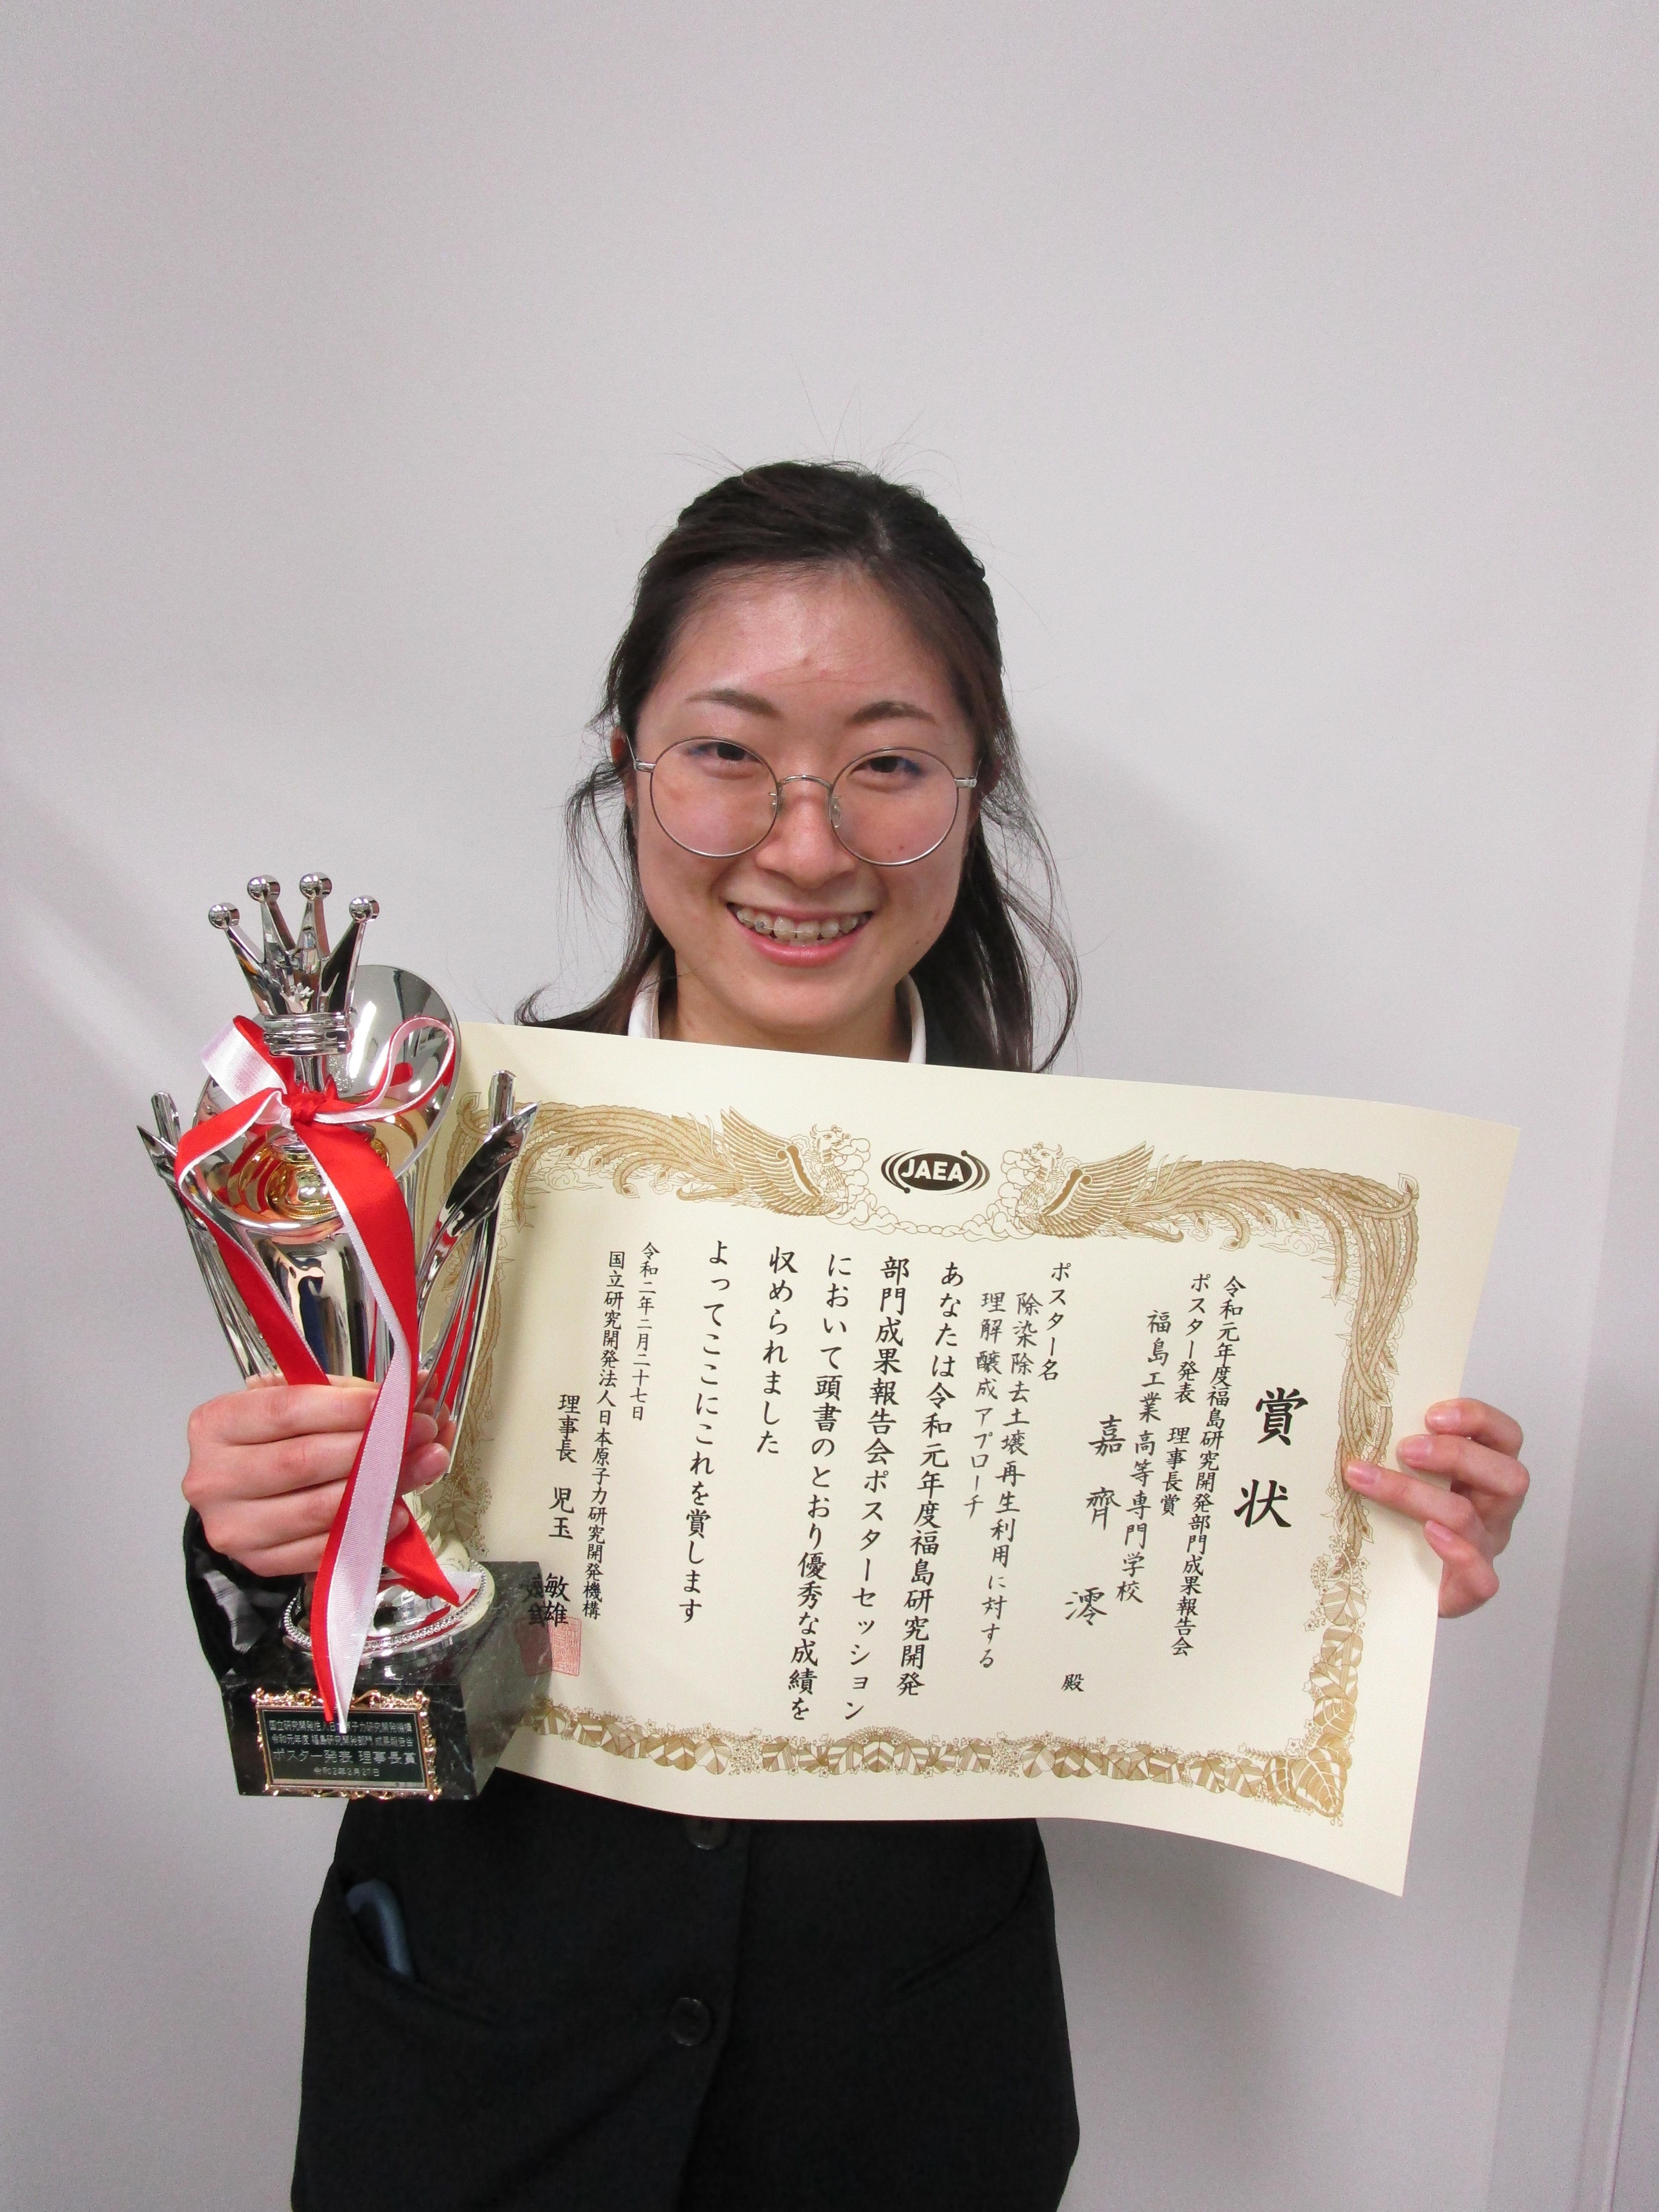 JAEA
賞状
令和元年度福島研究開発部門成果報告会
ポスター発表 理事長賞
福島工業高等専門学校
嘉齊 澪 殿
ポスター名
除染除去土壌再生利用に対する
理解醸成アプローチ
あなたは令和元年度福島研究開発
部門成果報告会ポスターセッション
において頭書のとおり優秀な成績を
収められました
よってここにこれを賞します
令和二年二月二十七日
国立研究開発法人日本原子力研究開発機構
理事長 児玉 敏雄
国立研究開発法人日本原子力研究開発機構
令和元年度 福島研究開発部門 成果報告会
ポスター発表 理事長賞
令和2年2月27日